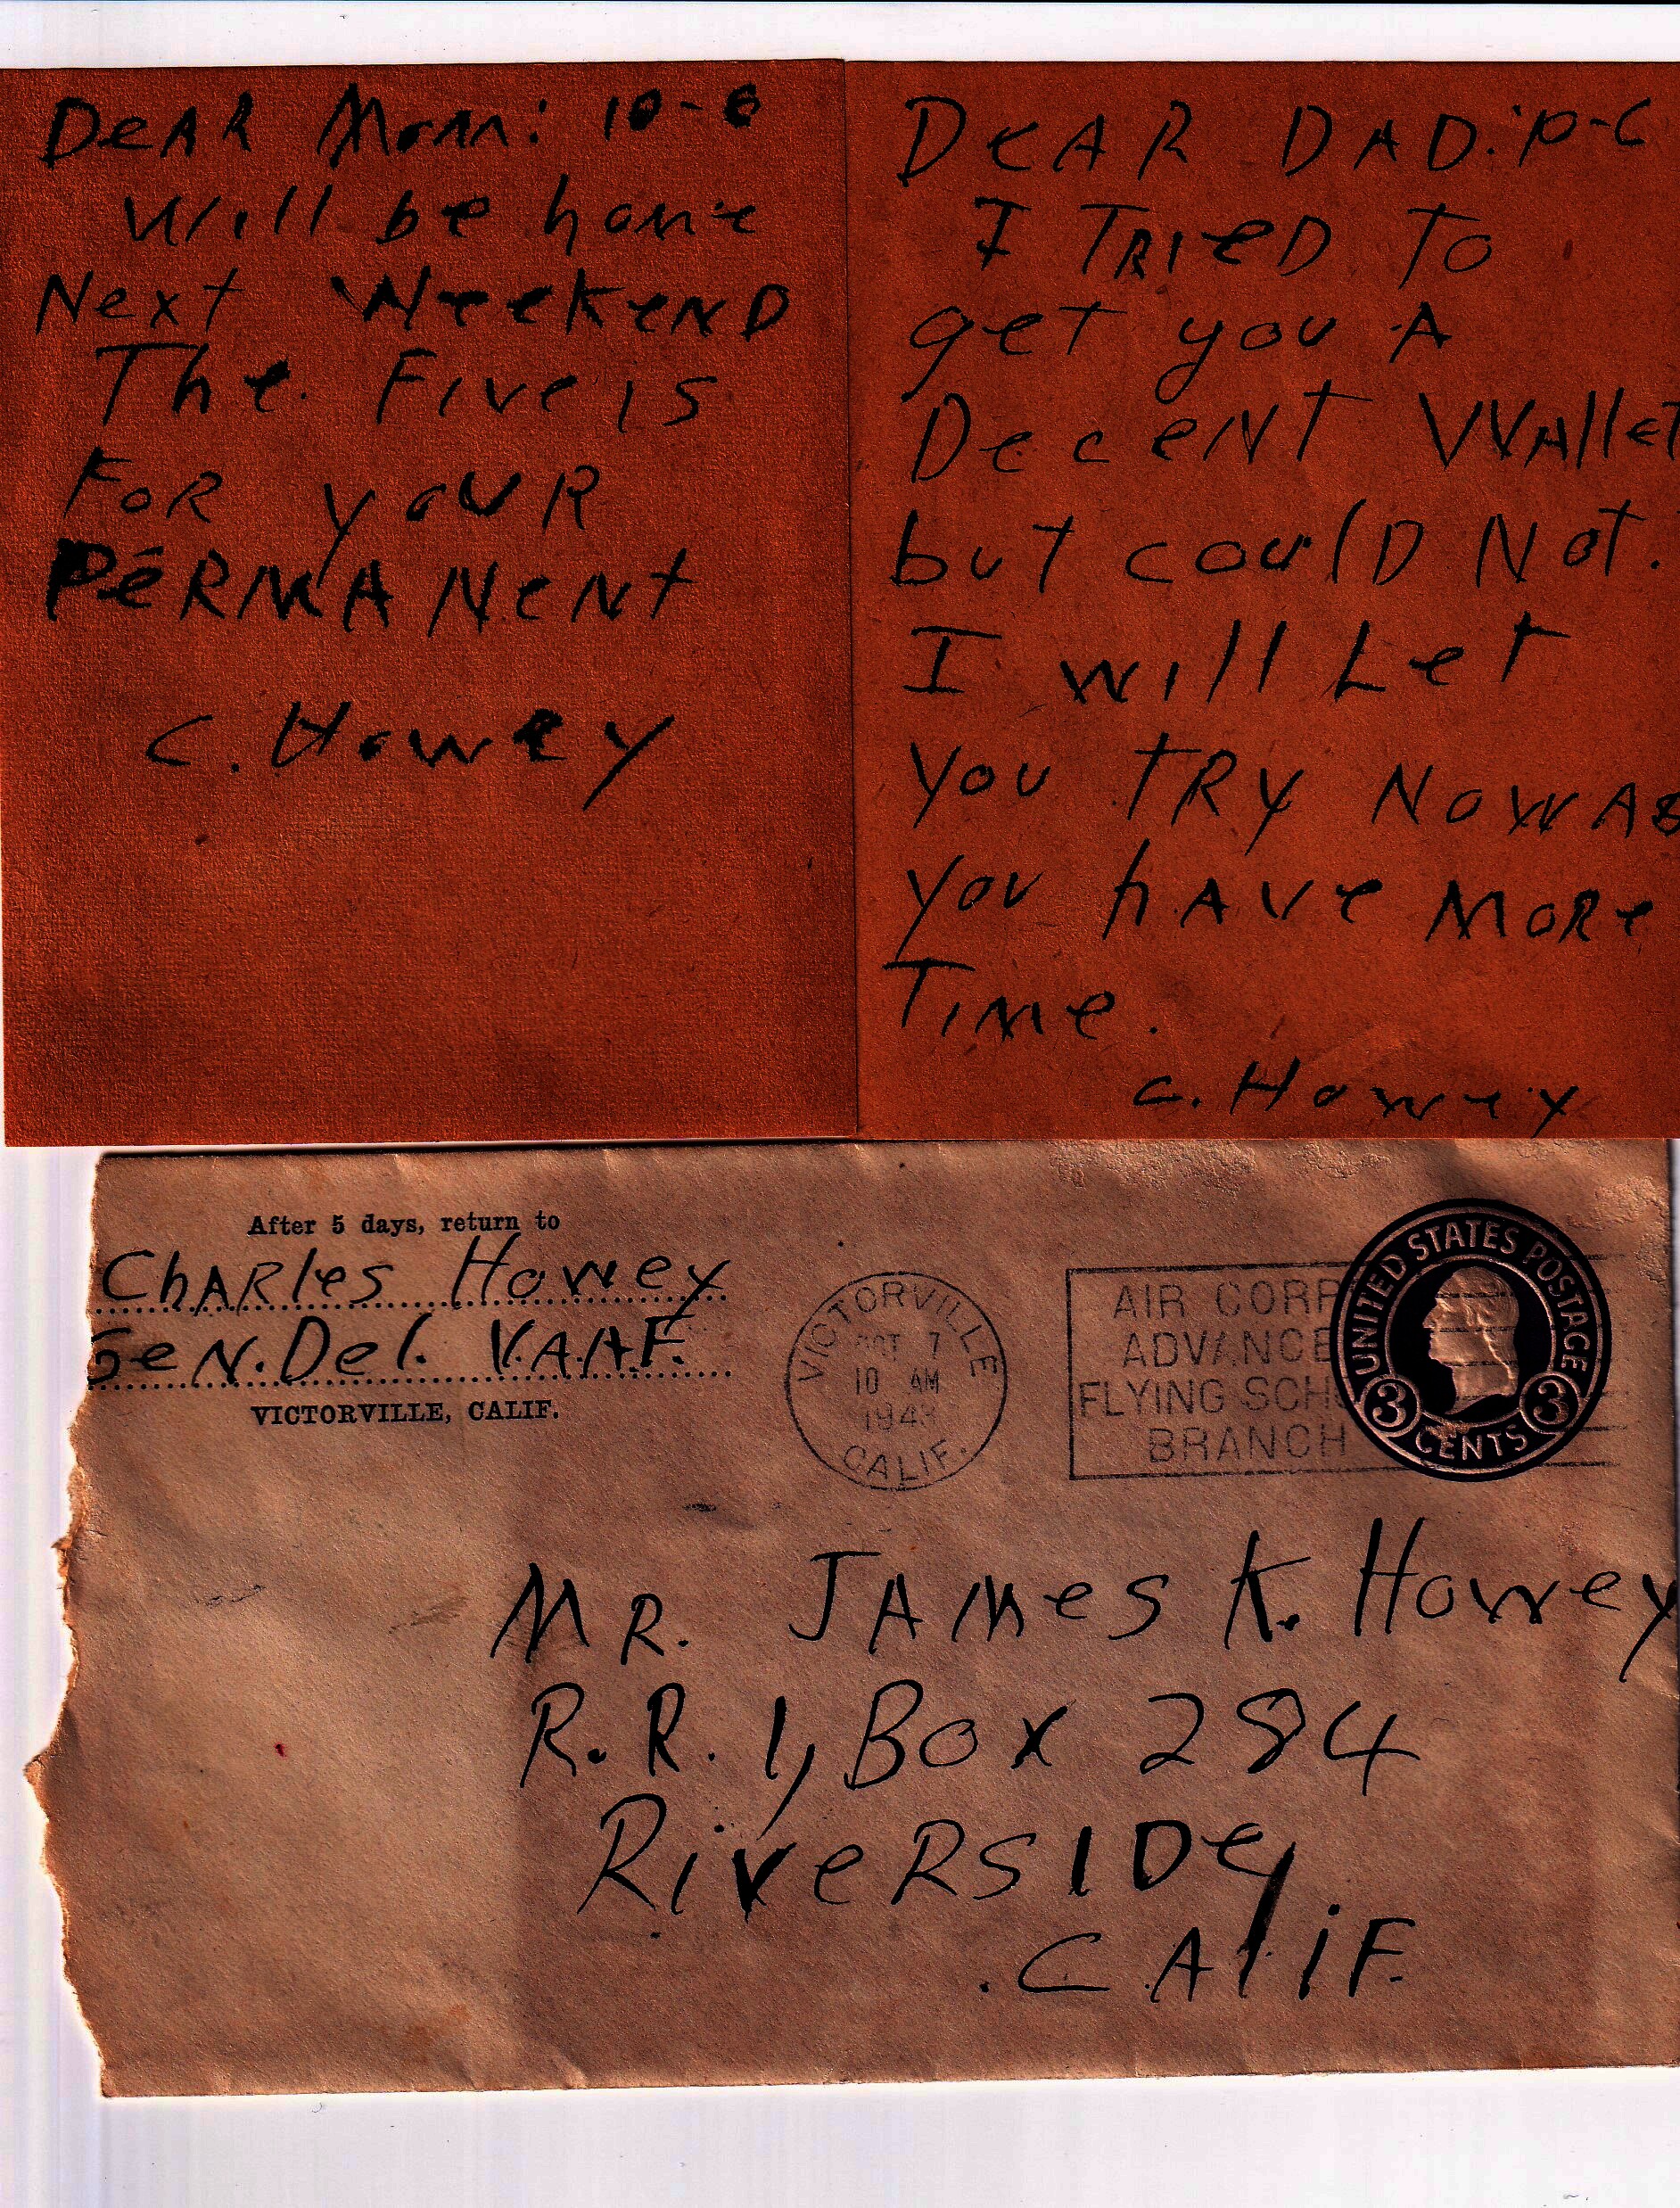 Dear Mom: 10-6
Will be home
Next Weekend
The Five is
For your
Permanent
C. Howey
Dear Dad: 10-6
I Tried To
get you A
Decent Wallet
but could Not.
I will Let
you try Now As
you have More
Time.
C. Howey
After 5 days, return to
Charles Howey
Gen. Del. V.A.A.F.
VICTORVILLE, CALIF.
VICTORVILLE
OCT 7
10 AM
1943
CALIF.
AIR CORP
ADVANCE
FLYING SCH
BRANCH
UNITED STATES POSTAGE
3 CENTS 3
Mr. James K. Howey
R.R. 1, Box 284
Riverside,
Calif.